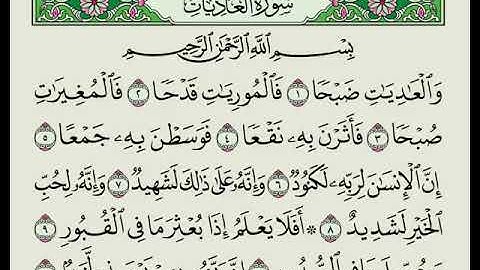 سُورَةُ العَادِيَاتِ
بِسْمِ اللَّهِ الرَّحْمَٰنِ الرَّحِيمِ
وَالْعَادِيَاتِ ضَبْحًا ١ فَالْمُورِيَاتِ قَدْحًا ٢ فَالْمُغِيرَاتِ
صُبْحًا ٣ فَأَثَرْنَ بِهِ نَقْعًا ٤ فَوَسَطْنَ بِهِ جَمْعًا ٥
إِنَّ الْإِنسَانَ لِرَبِّهِ لَكَنُودٌ ٦ وَإِنَّهُ عَلَىٰ ذَٰلِكَ لَشَهِيدٌ ٧ وَإِنَّهُ لِحُبِّ
الْخَيْرِ لَشَدِيدٌ ٨ ۞ أَفَلَا يَعْلَمُ إِذَا بُعْثِرَ مَا فِي الْقُبُورِ ٩